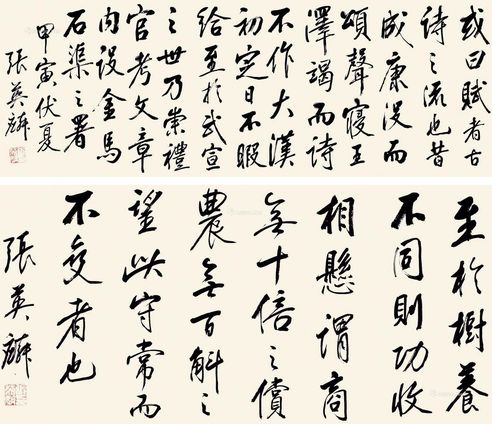 或曰賦者古
詩之流也昔
成康沒而
頌聲寢王
澤竭而詩
不作大漢
初定日不暇
給至於武宣
之世乃崇禮
官考文章
內設金馬
石渠之署
甲寅伏夏
張英麟
至於樹養
不同則功收
相懸謂商
無十倍之價
農無百斛之
望此守常而
不變者也
張英麟